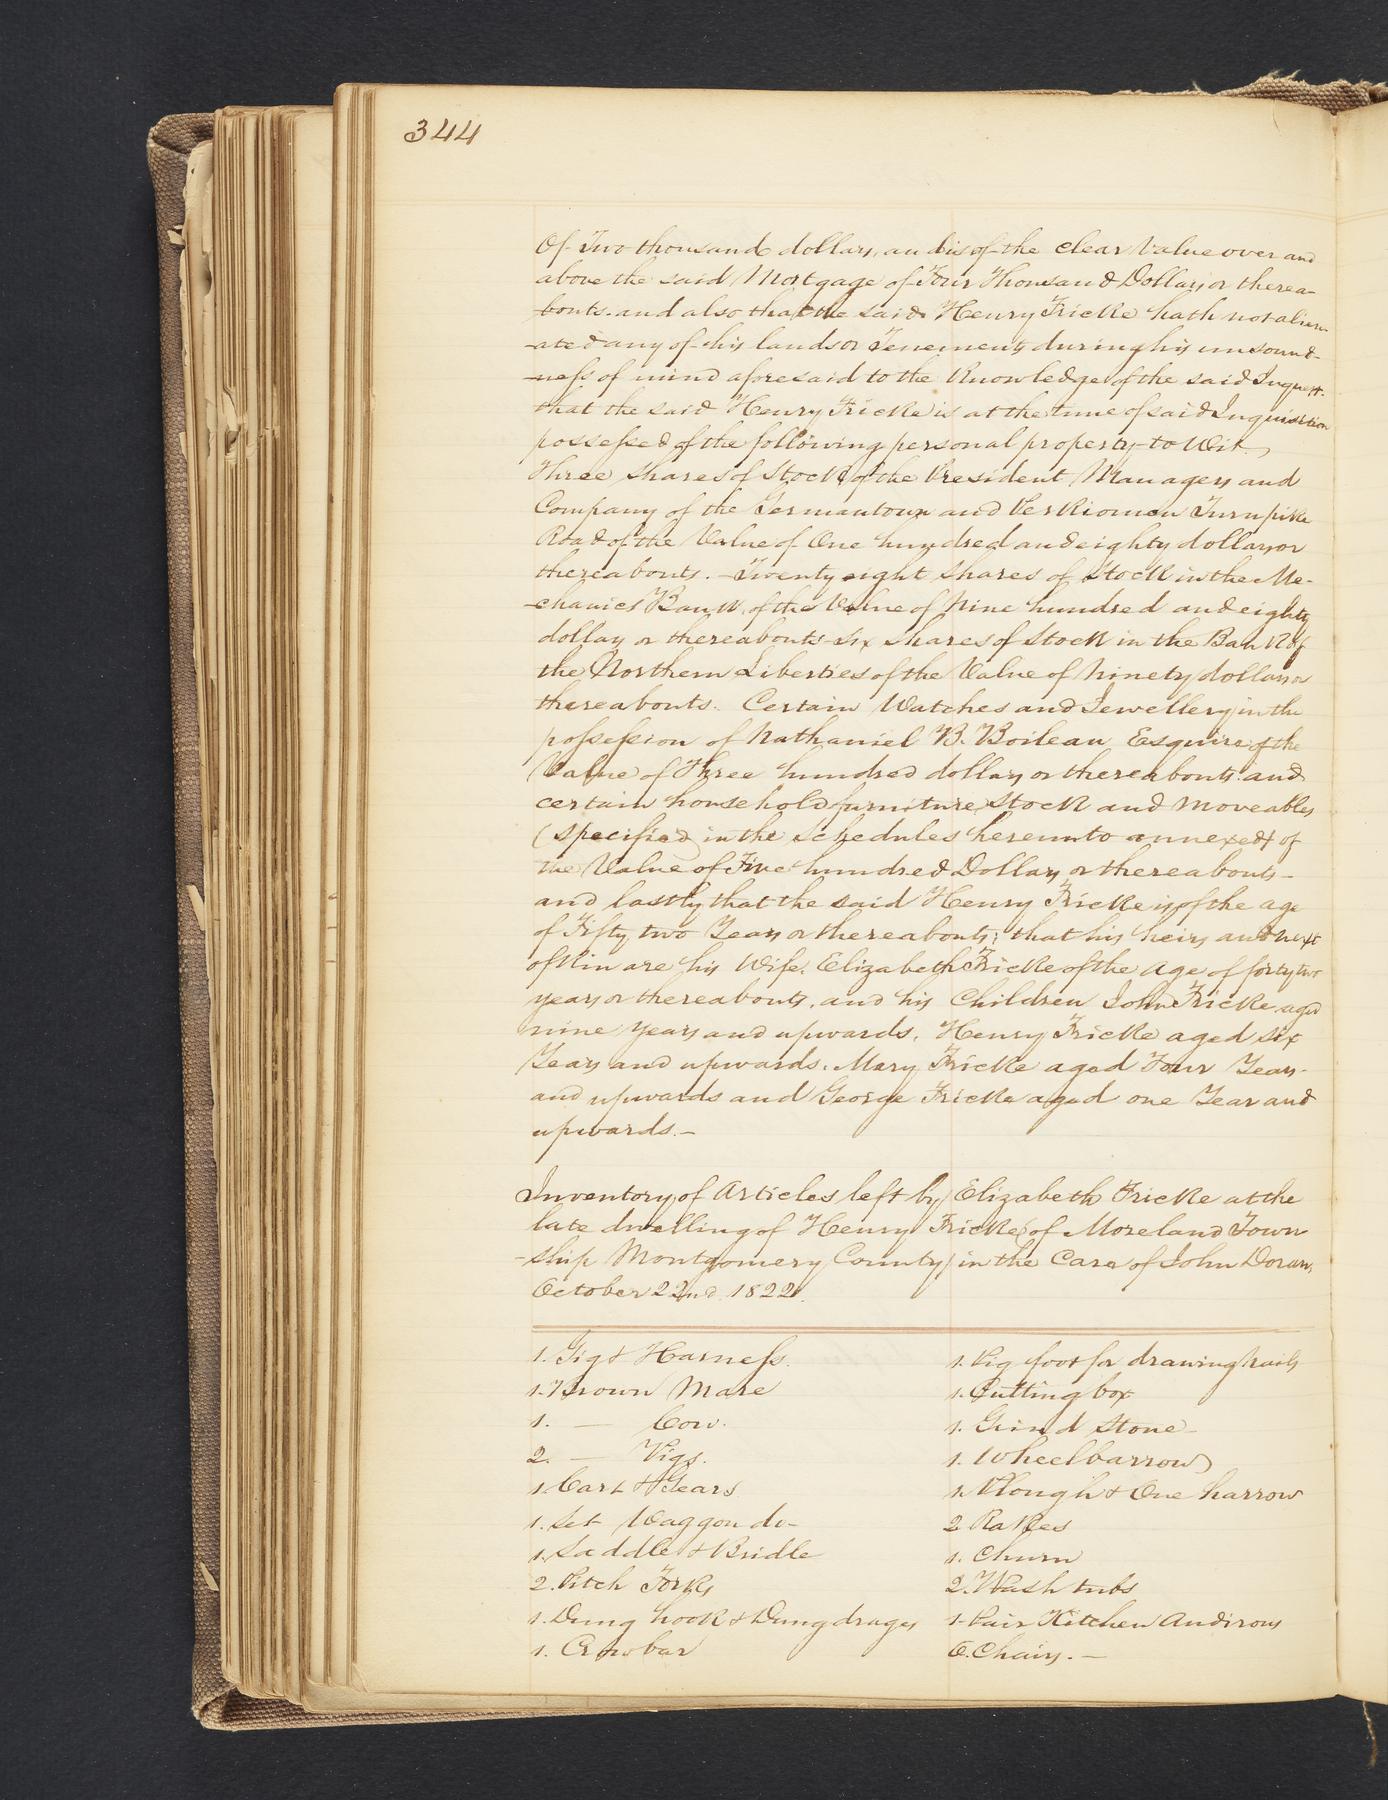 344
Of Two thousand dollars, an dis of the clear Value over and
above the said Mortgage of Four Thousand Dollars or therea-
bouts. and also that the said Henry Fricke hath not alien-
-ated any of his lands or Tenements during his unsound-
-ness of mind aforesaid to the Knowledge of the said Inquest.
that the said Henry Fricke is at the time of said Inquisition
possessed of the following personal property to Wit.
Three shares of Stock of the President Managers and
Company of the Germantown and Perkiomen Turnpike
Road of the Value of One hundred and eighty dollars or
thereabouts. - Twenty eight shares of Stock in the Me-
-chanics Bank, of the Value of Nine hundred and eighty
dollars or thereabouts - six shares of Stock in the Bank of
the Northern Liberties of the Value of Ninety dollars or
thereabouts. Certain Watches and Jewellery in the
possession of Nathaniel B. Boileau Esquire of the
Value of Three hundred dollars or thereabouts. and
certain household furniture, Stock and Moveables
(specified in the schedules hereunto annexed) of
the Value of Five hundred Dollars or thereabouts -
and lastly that the said Henry Fricke is of the age
of Fifty two Years or thereabouts; that his heirs and next
of Kin are his Wife. Elizabeth Fricke of the age of forty two
years or thereabouts. and his Children John Fricke aged
nine years and upwards. Henry Fricke aged six
Years and upwards. Mary Fricke aged Four Years
and upwards and George Fricke aged one Year and
upwards. -
Inventory of Articles left by Elizabeth Fricke at the
late dwelling of Henry Fricke (of Moreland Town
-ship Montgomery County) in the Care of John Doran,
October 22nd. 1822.
1. Gig & Harness.
1. Brown Mare
1. — Cow.
2. — Pigs.
1. Cart & Gears
1. Set Waggon do -
1. Saddle & Bridle
2. Pitch Forks
1. Dung hook & Dung drages
1. Crowbar
1. Pig foot for drawing nails
1. Cutting box
1. Grind Stone -
1. Wheelbarrow
1. Plough & One harrow
2 Rakes
1. Churn
2. Wash tubs
1. Pair Kitchen Andirons
6. Chairs. -